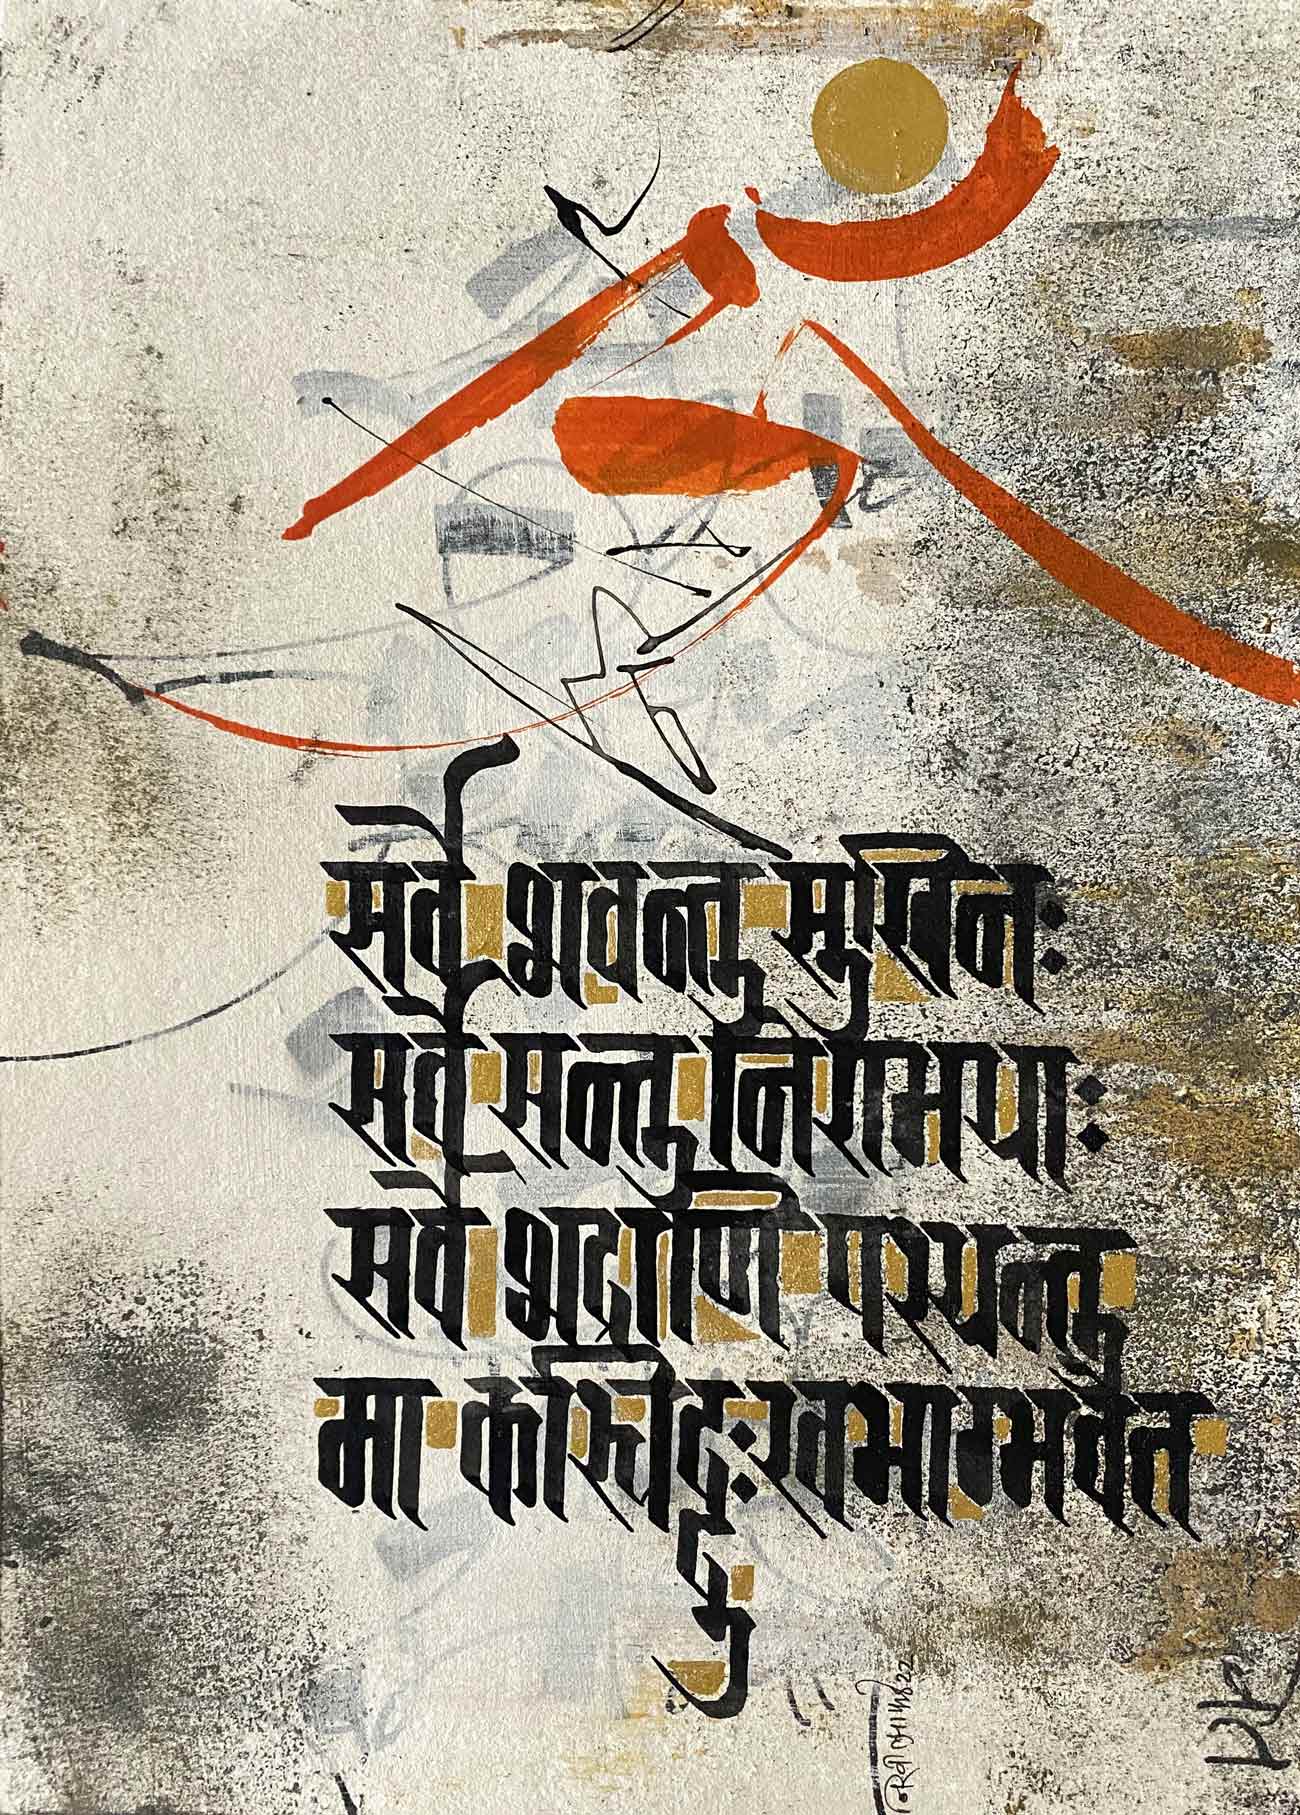 सर्वे भवन्तु सुखिनः
सर्वे सन्तु निरामयाः
सर्वे भद्राणि पश्यन्तु
मा कश्चिद्दुःखभाग्भवेत